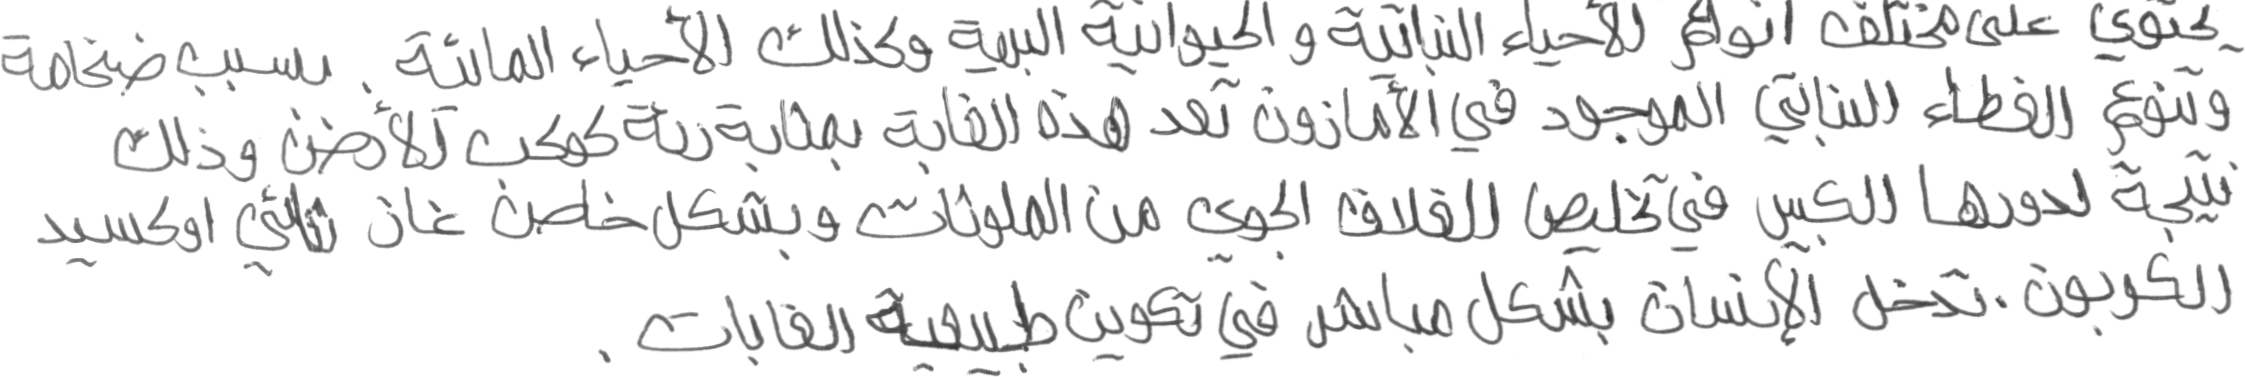 يحتوي على مختلف أنواع الأحياء النباتية و الحيوانية البرية وكذلك الأحياء المائية. بسبب ضخامة
وتنوع الغطاء النباتي الموجود في الأمازون تعد هذه الغابة بمثابة رئة كوكب الأرض وذلك
نتيجة لدورها الكبير في تخليص الغلاف الجوي من الملوثات وبشكل خاص غاز ثنائي اوكسيد
الكربون. تدخل الإنسان بشكل مباشر في تكوين طبيعية الغابات.